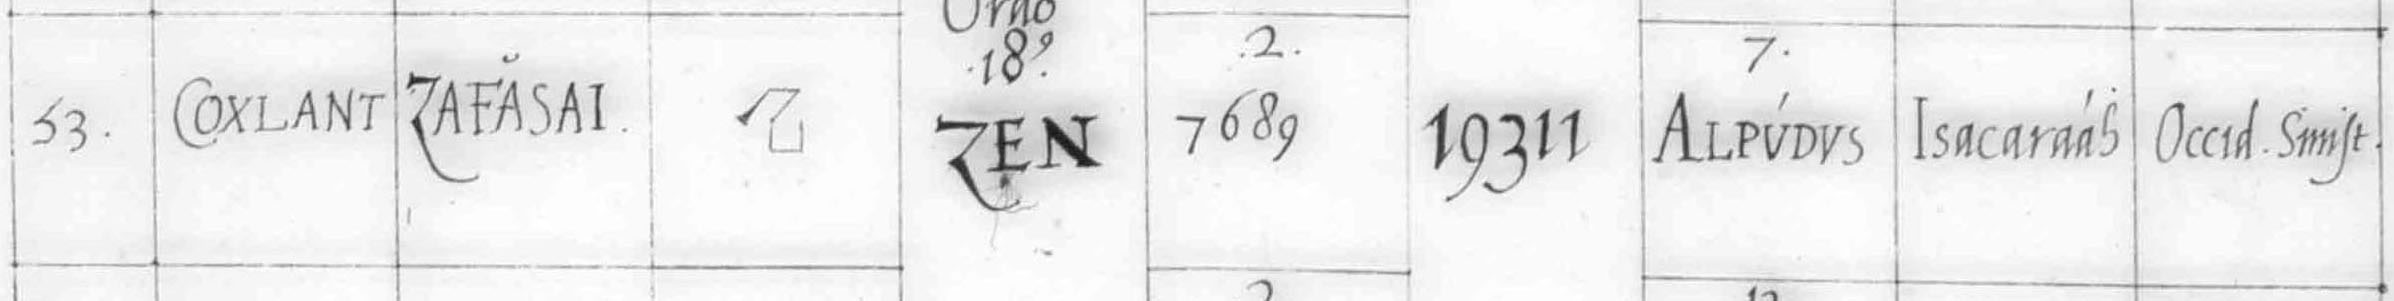 53. COXLANT ZAFĂSAI. Ordo .18⁹. ZEN .2. 7689 19311 7. ALPÚDVS Isacaraáṡ Occid. Sinist.